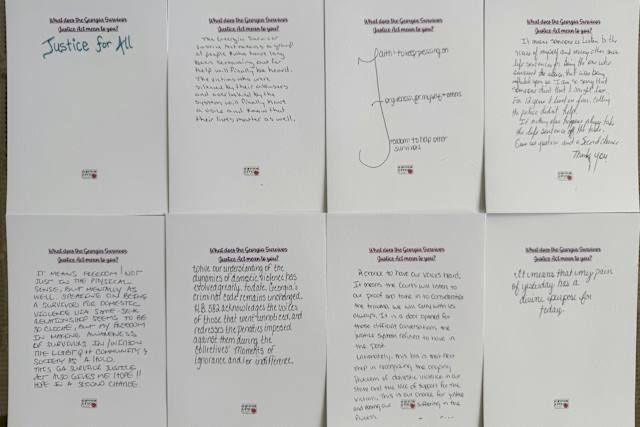 What does the Georgia Survivors
Justice Act mean to you?
Justice for All
What does the Georgia Survivors
Justice Act mean to you?
The Georgia Survivor
Justice Act means a group
of people who have long
been screaming out for
help will finally be heard.
The victims who were
silenced by their abusers
and overlooked by the
system will finally have
a voice and know that
their lives matter as well.
What does the Georgia Survivors
Justice Act mean to you?
Faith to keep pressing on
Forgiveness for myself & others
Freedom to help other
survivors
What does the Georgia Survivors
Justice Act mean to you?
It means someone is listen to the
voices of myself and many other
life sentences for being the one who
survived the abuse, that was being
so I am so sorry that
someone died that I caught him.
For 12 years I lived in fear, calling
the police didn't help.
If nothing else happens please take
the life sentence off the table.
Everyone a Second Chance
Thank you
What does the Georgia Survivors
Justice Act mean to you?
IT MEANS FREEDOM! NOT
JUST IN THE PHYSICAL
SENSE, BUT MENTALLY AS
WELL. SPEAKING ON BEING
A SURVIVOR FOR DOMESTIC
VIOLENCE VIA SAME-SEX
RELATIONSHIP SEEMS TO BE
SO CLICHE, BUT MY FREEDOM
IN MAKING AWARENESS
OF SURVIVORS IN/WITHIN
THE LGBTQ+ COMMUNITY &
SOCIETY AS A WHOLE.
THIS GA SURVIVOR JUSTICE
ACT ALSO GIVES ME HOPE!!
HOPE IN A SECOND CHANCE
What does the Georgia Survivors
Justice Act mean to you?
While our understanding of the
dynamics of domestic violence has
evolved greatly, to date, Georgia's
criminal code remains unchanged.
H.B. 582 acknowledges the voices
of those that went unnoticed, and
redresses the penalties imposed
against them during the
collectives' moments of
ignorance and/or indifference.
What does the Georgia Survivors
Justice Act mean to you?
A chance to have our voices heard.
It means the Courts will listen to
our proof and take in to consideration
the trauma we will carry with us
always. It is a door opened for
those difficult conversations the
justice system refused to have in
the past.
Ultimately, this bill is their next
step in recognizing the ongoing
problem of domestic violence in our
state and the lack of support for the
victims. This is our chance for justice
and ending our suffering in the
process.
What does the Georgia Survivors
Justice Act mean to you?
It means that my pain
of yesterday has a
divine purpose for
today.